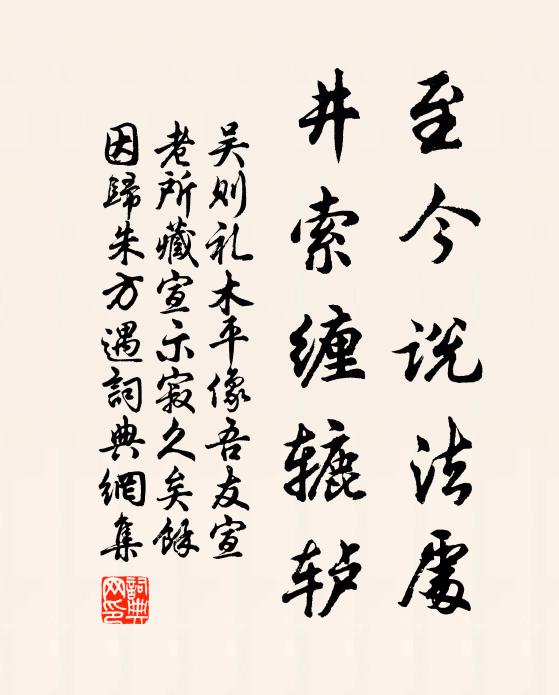 至今说法處
井索缠辘轳
吴则礼木平像吾友宣
老所藏宣示寂久矣餘
因歸朱方遇詞典網集
詞典网印